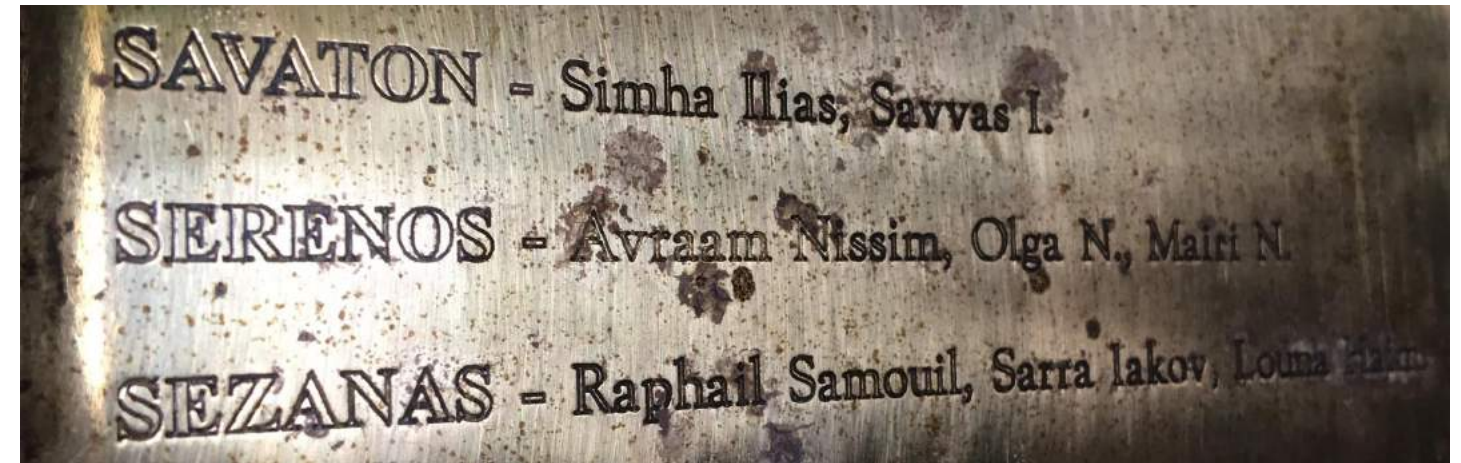 SAVATON - Simha Ilias, Savvas I.
SERENOS - Avraam Nissim, Olga N., Mairi N.
SEZANAS - Raphail Samouil, Sarra Iakov, Louna Haim